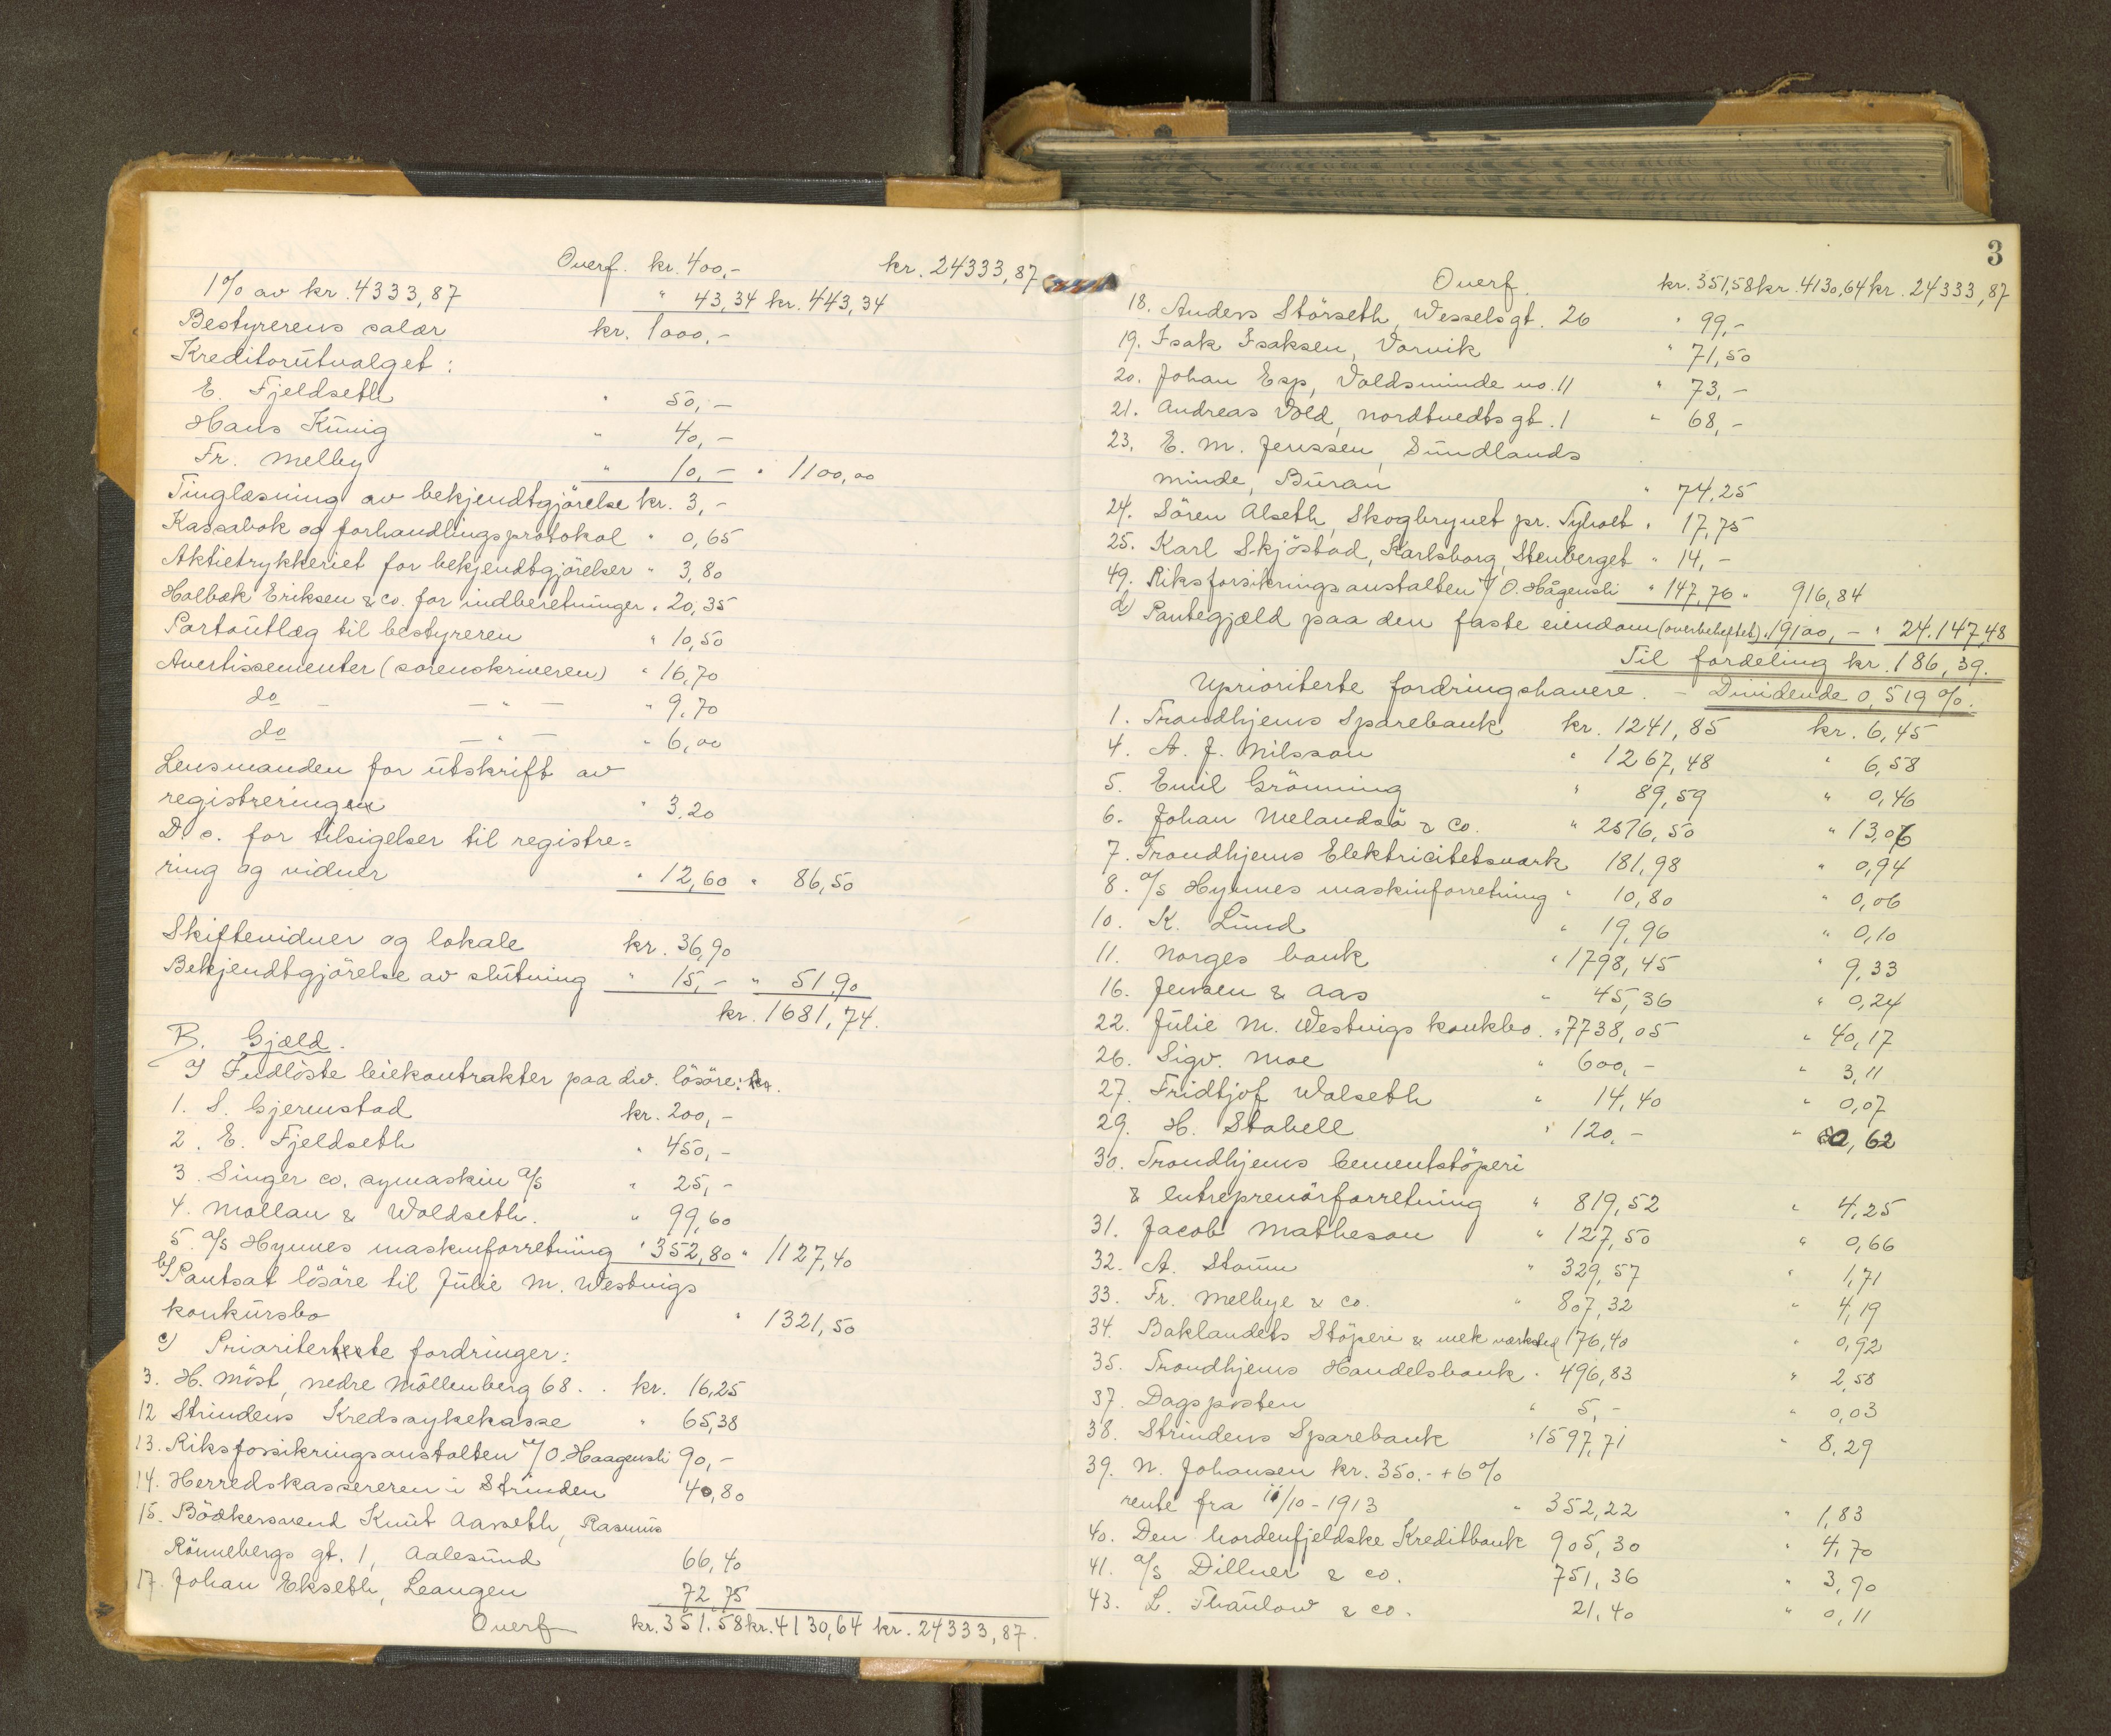 Overf. kr. 400,- kr. 24333,87
1% av kr. 4333,87 " 43,34 kr. 443,34
Bestyrerens salær kr. 1000,-
Kreditorutvalget:
E. Fjeldseth " 50,-
Hans König " 40,-
Fr. Melby " 10,- " 1100,00
Tinglæsning av bekjendtgjörelse kr. 3,-
Kassabok og forhandlingsprotokol " 0,65
Aktietrykkeriet for bekjendtgjörelser " 3,80
Holbæk Eriksen & co. for indberetninger " 20,35
Portoutlæg til bestyreren " 10,50
Avertissementer (sorenskriveren) " 16,70
do - - " - " 9,70
do - " - " 6,00
Lensmanden for utskrift av
registreringen " 3,20
D.o. for tilsigelser til registre=
ring og vidner " 12,60 " 86,50
Skiftevidner og lokale kr. 36,90
Bekjendtgjörelse av slutning " 15,- " 51,90
kr. 1681,74.
B. Gjæld.
a) Indlöste leiekontrakter paa dw. lösöre:
1. S. Gjermstad kr. 200,-
2. E. Fjeldseth " 450,-
3. Singer co. symaskin a/s " 25,-
4. Mollan & Woldseth. " 99,60
5. a/s Hynnes maskinforretning " 352,80 " 1127,40
b) Pantsat lösöre til Julie M. Westvigs
konkursbo " 1321,50
c) Prioriterte fordringer:
3. H. Möst, nedre Möllenberg 68.. kr. 16,25
12 Strindens Kredssykekasse " 65,38
13. Riksforsikringsanstalten v/O. Haagensli 90,-
14. Herredskassereren i Strinden 40,80
15. Bödkersvend Knut Aarseth, Rasmus
Rönnebergs gt. 1, Aalesund 66,40
17. Johan Ekseth, Leangen 72,75
Overf kr. 351.58 kr. 4130,64 kr. 24333,87.
3
Overf. kr. 351,58 kr. 4130,64 kr. 24333,87
18. Anders Störseth, Wesselsgt. 26 " 99,-
19. Isak Isaksen, Vorvik " 71,50
20. Johan Esp, Voldsminde no. 11 " 73,-
21. Andreas Vold, Nordtvedtsgt. 1 " 68,-
23. E. M. Jenssen, Sundlands
minde, Buran " 74,25
24. Sören Alseth, Skogbrynet pr. Tyholt " 17,75
25. Karl Skjöstad, Karlsborg, Stenberget " 14,-
49. Riksforsikringsanstalten v/ O. Hågensli " 147,76 " 916,84
d) Pantegjæld paa den faste eiendom (overbeheftet) " 19100,- " 24.147,48
Til fordeling kr. 186,39.
Uprioriterte fordringshavere. - Dividende 0,519%.
1. Trondhjems Sparebank kr. 1241,85 kr. 6,45
4. A. J. Nilsson " 1267,48 " 6,58
5. Emil Grönning " 89,59 " 0,46
6. Johan Melandsö & co. " 2516,50 " 13,06
7. Trondhjems Elektricitetsverk 181,98 " 0,94
8. a/s Hynnes maskinforretning " 10,80 " 0,06
10. K. Lund " 19,96 " 0,10
11. Norges bank " 1798,45 " 9,33
16. Jensen & Aas " 45,36 " 0,24
22. Julie M. Westvigs konkbo. " 7738,05 " 40,17
26. Sigv. Moe " 600,- " 3,11
27. Fridtjof Walseth " 14,40 " 0,07
29. H. Stabell " 120,- " 0,62
30. Trondhjems Cementstöperi
& entreprenörforretning " 819,52 " 4,25
31. Jacob Matheson " 127,50 " 0,66
32. A. Staum " 329,57 " 1,71
33. Fr. Melbye & co. " 807,32 " 4,19
34. Baklandets Stöperi & mek verksted 176,40 " 0,92
35. Trondhjems Handelsbank " 496,83 " 2,58
37. Dagsposten " 5,- " 0,03
38. Strindens Sparebank " 1597,71 " 8,29
39. N. Johansen kr. 350.- + 6%
rente fra 11/10-1913 " 352,22 " 1,83
40. Den nordenfjeldske Kreditbank 905,30 " 4,70
41. a/s Dillner & co. 751,36 " 3,90
43. L. Thaulow & co. 21,40 " 0,11